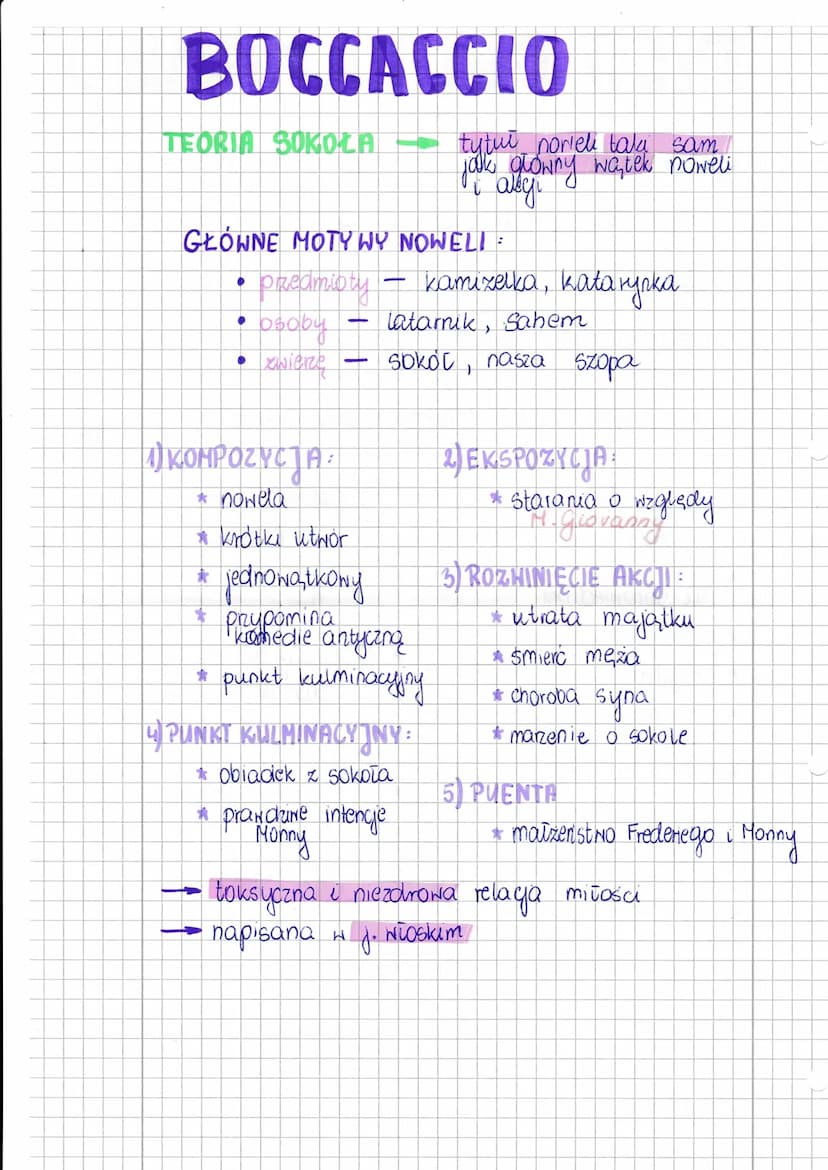 BOCCACCIO
TEORIA SOKOŁA → tytuł noweli taki sam
jak główny wątek noweli
i akcji
GŁÓWNE MOTYWY NOWELI :
• przedmioty — kamizelka, katarynka
• osoby — latarnik, Sahem
• zwierzę — sokół, nasza szopa
1) KOMPOZYCJA:
* nowela
* krótki utwór
* jednowątkowy
* przypomina
komedie antyczną
* punkt kulminacyjny
2) EKSPOZYCJA:
* starania o względy
M. Giovanny
3) ROZWINIĘCIE AKCJI :
* utrata majątku
* śmierć męża
* choroba syna
* marzenie o sokole
4) PUNKT KULMINACYJNY:
* obiadek z sokoła
* prawdziwe intencje
Monny
5) PUENTA
* małżeństwo Frederiego i Monny
→ toksyczna i niezdrowa relacja miłości
→ napisana w j. włoskim